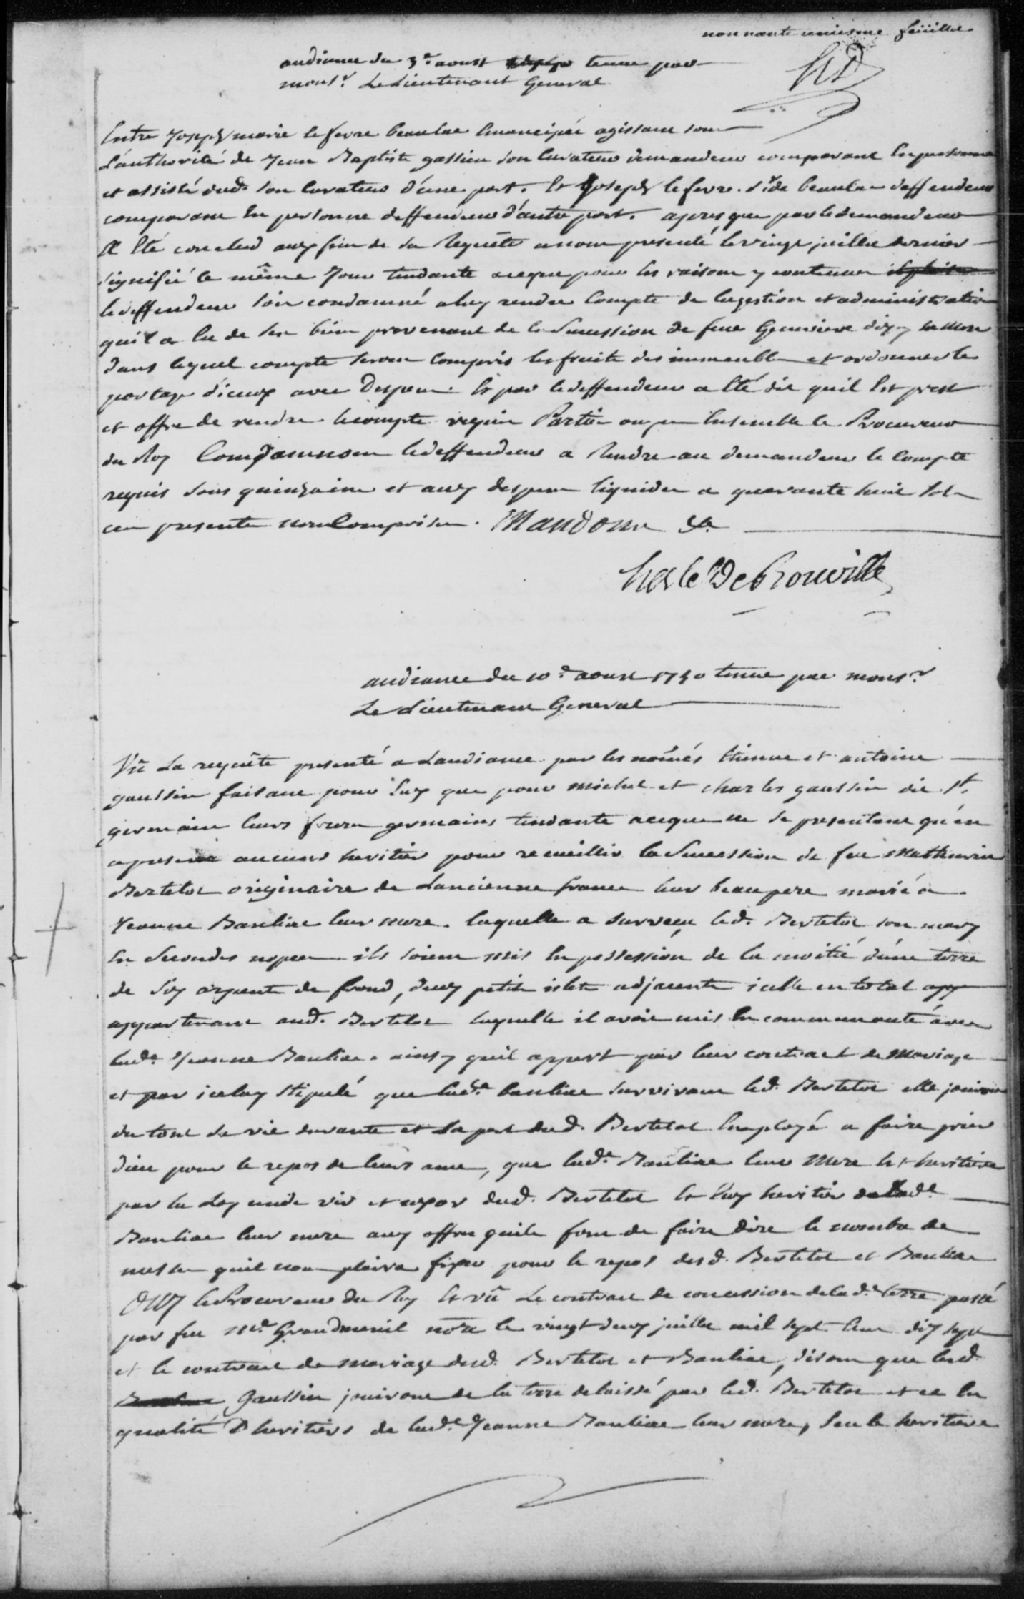 nonnante uniesme feüillet
audiance du 3e. aoust tenue par
monsr. Le Lieutenant General
Entre Joseph marie lefevre beaulac Emancipée agissant sous
L'authorité de Jean Baptiste gassien son Curateur demandeur comparant En personne
et assisté dud. son Curateur d'une part. Et Joseph lefevre Sr. de beaulac deffendeur
comparant En personne deffendeur d'autre part. apres que par le demandeur
a Eté conclud aux fins de sa Requête a nous presenté le vingt juillet dernier
signifié le même Jour tendante aceque pour les raisons y contenues
le deffendeur soit condamné a luy rendre Compte de la gestion et administration
qu'il a Eu de ses biens provenant de la Succession de feue Genevieve sa mere
dans lequel compte seront compris les fruits des immeubles et ordonner le
partage d'iceux avec Depens. Et par le deffendeur a Eté dit quil Est prest
et offre de rendre le compte requis Parties ouyes Ensemble le Procureur
du Roy Condamnons le deffendeur a Rendre au demandeur le Compte
requis sous quinzaine et aux despens liquidés a quarante huit sols
ces presentes non Comprises. Mandons &a.
de Rouville
audiance du 10e. aoust 1750 tenue par monsr.
Le Lieutenant General
Vû La requête presenté a Laudiance par les només Etienne et antoine
gaussin faisant pour Eux que pour michel et charles gaussin dit St.
germain leurs freres germains tendante aceque ne se presentant qu'en
apresent aucuns heritiers pour recueillir la Succession de feu Mathurin
Bertelot originaire de Lancienne france leur beaupere marié a
Jeanne Banliac leur mere. laquelle a survecu led. Bertelot son mary
En Secondes nopces ils soient mis En possession de la moitié d'une terre
de Six arpents de front, deux petits islets adjacents icelle en total app
appartenant aud. Bertelot laquelle il avoit mis En communauté avec
lade. Jeanne Banliac. ainsy quil appert par leur contract de Mariage
et par iceluy stipulé que lade. banliac survivant led. Bertelot elle jouiroit
du tout sa vie durante et sa part dud. Bertelot Employé a faire prier
dieu pour le repos de leurs ames, que lade. Banliac leur Mere Est heritiere
par la Loy unde vir et uxor dud. Bertelot Et Eux heritiers de lade.
Banliac leur mere aux offres quils font de faire dire le nombre de
messes quil nous plaira fixer pour le repos desd. Bertelot et Banliac
Ouy le Procureur du Roy Et vû Le contract de concession de lade. terre passé
par feu me. Grandmenil notre le vingt deux juillet mil sept Cent dix sept
et le contract de mariage desd. Bertelot et Banliac, disons que lesd.
Gaussin jouiront de la terre delaissé par led. Bertelot et ce En
qualité d'heritiers de lade. Jeanne Banliac leur mere, seule heritiere